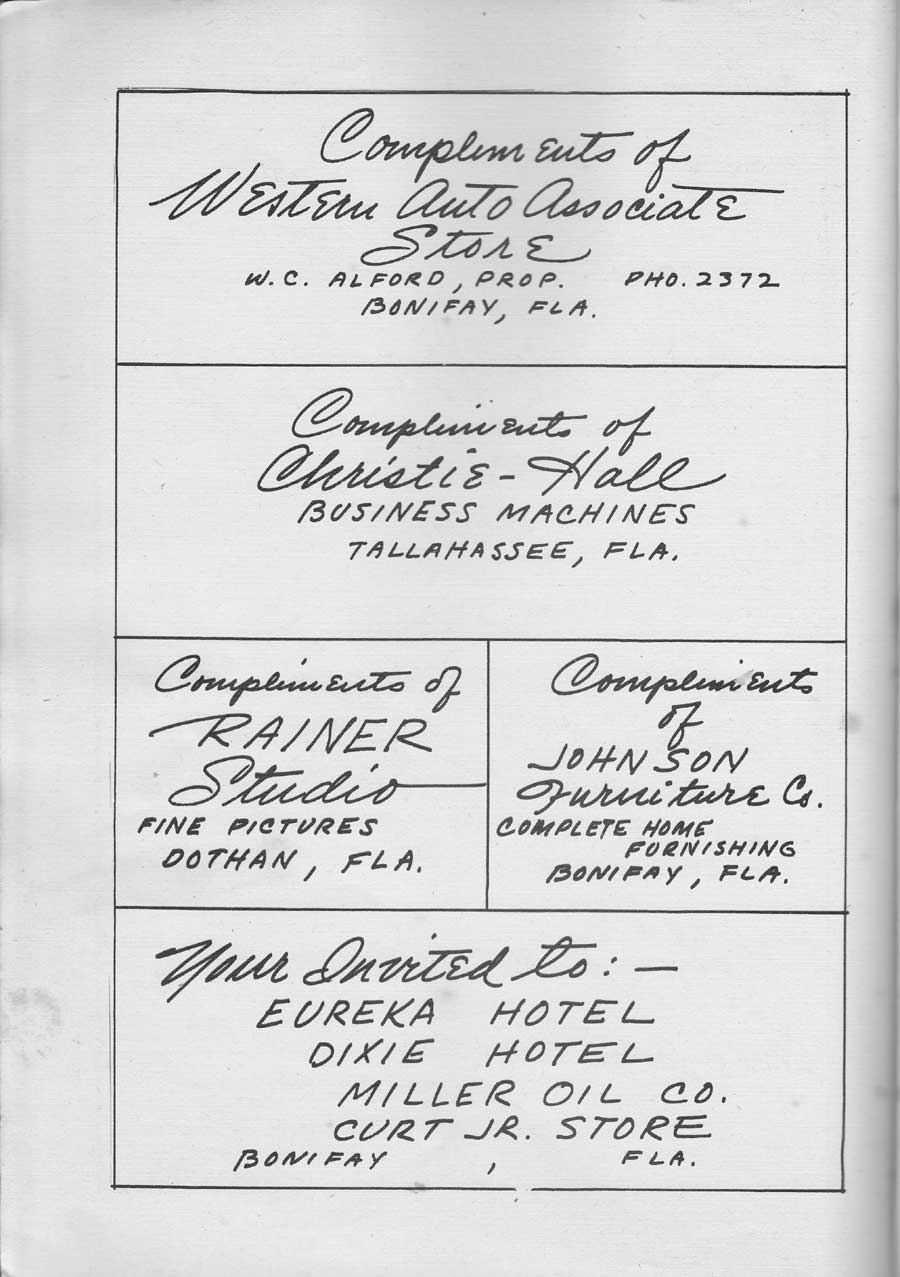 Compliments of
Western Auto Associate
Store
W.C. ALFORD, PROP. PHO. 2372
BONIFAY, FLA.
Compliments of
Christie-Hall
BUSINESS MACHINES
TALLAHASSEE, FLA.
Compliments of
RAINER
Studio
FINE PICTURES
DOTHAN, FLA.
Compliments
of
JOHNSON
Furniture Co.
COMPLETE HOME
FURNISHING
BONIFAY, FLA.
Your Invited to: —
EUREKA HOTEL
DIXIE HOTEL
MILLER OIL CO.
CURT JR. STORE
BONIFAY , FLA.